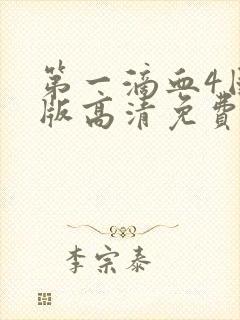 第一滴血4
版高清免费
李宗泰